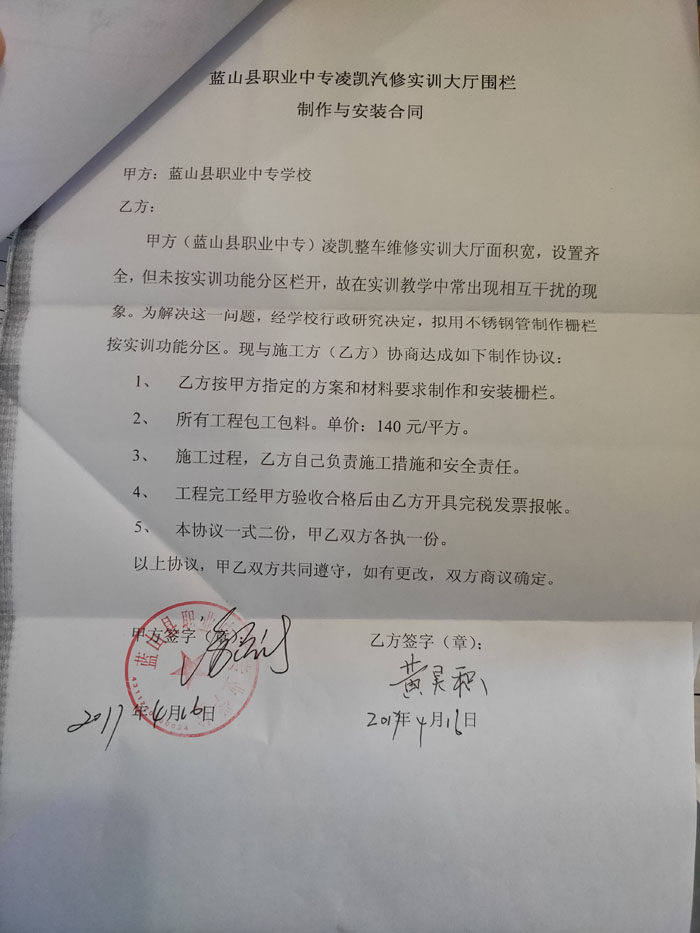 蓝山县职业中专凌凯汽修实训大厅围栏
制作与安装合同
甲方：蓝山县职业中专学校
乙方：
甲方（蓝山县职业中专）凌凯整车维修实训大厅面积宽，设置齐
全，但未按实训功能分区栏开，故在实训教学中常出现相互干扰的现
象。为解决这一问题，经学校行政研究决定，拟用不锈钢管制作栅栏
按实训功能分区。现与施工方（乙方）协商达成如下制作协议：
1、 乙方按甲方指定的方案和材料要求制作和安装栅栏。
2、 所有工程包工包料。单价：140 元/平方。
3、 施工过程，乙方自己负责施工措施和安全责任。
4、 工程完工经甲方验收合格后由乙方开具完税发票报帐。
5、 本协议一式二份，甲乙双方各执一份。
以上协议，甲乙双方共同遵守，如有更改，双方商议确定。
甲方签字（章）： 乙方签字（章）：
蓝山县职业
黄
2017年4月16日 2017年4月16日